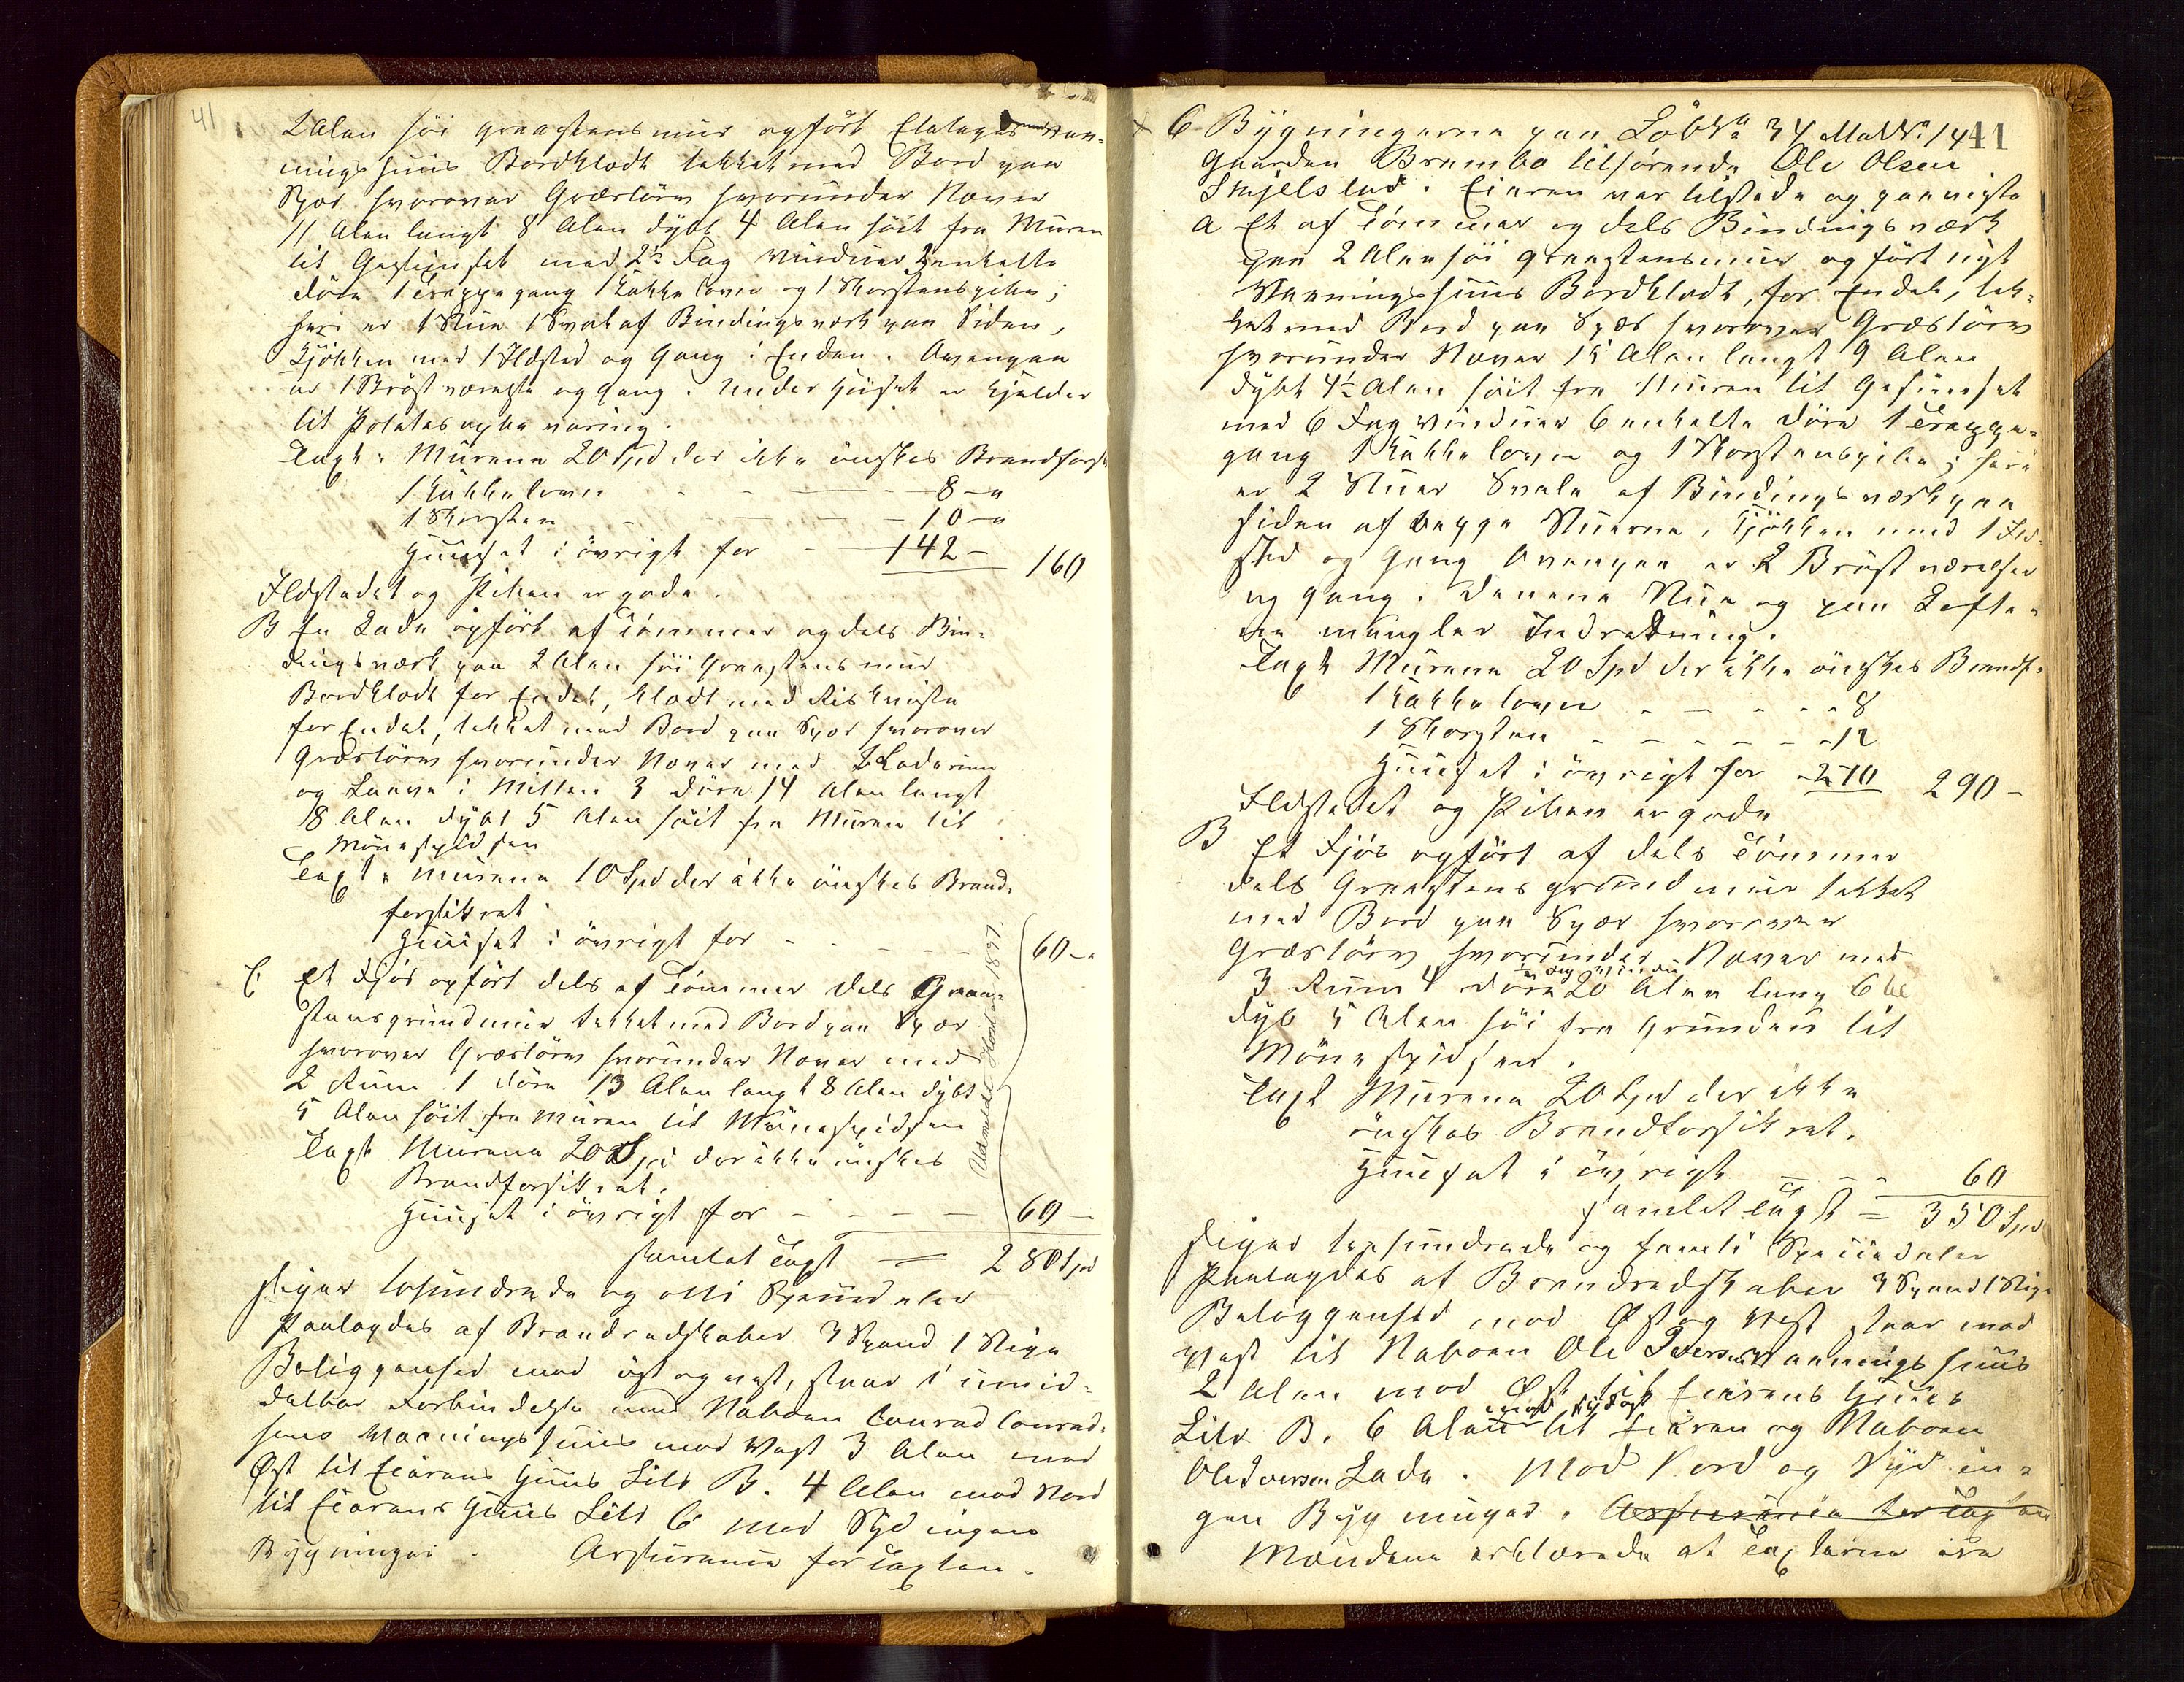 41
2 Alen høi graastensmur opført Etetages Vaa-
ningshuus Bordklædt tækket med Bord paa
Spær hvorover Græstørv hvorunder Næver
11 Alen langt 8 Alen dybt 4 Alen høit fra Muren
til Gesimset med 2½ Fag Vinduer 2 enkelte
Døre 1 Trappegang 1 Kakkelovn og 1 Skorstenspibe;
heri er 1 Stue 1 Sval af Bindingsværk paa Siden,
Kjøkken med 1 Ildsted og Gang i Enden. Ovenpaa
er 1 Bryst værelse og Gang. Under Huset er Kjelder
til Potetes opbevaring.
Taxt: Murene 20 Spd der ikke ønskes Brandfors
1 Kakkelovn - - - 8 - "
1 Skorsten - - - 10 - "
Huuset i øvrigt for - 142 - 160
Ildstedet og Piben er gode.
B En Lade opført af Tømmer og dels Bin-
dingsværk paa 2 Alen høi Graastensmur
Bordklædt for Endel, klædt med Riskviste
for Endel, tækket med Bord paa Spær hvorover
Græstørv hvorunder Næver med 2 Laderum
og Laave i Mitten 3 Døre 14 Alen langt
8 Alen dybt 5 Alen høit fra Muren til
Mønespidsen
Taxt: Murene 10 Spd der ikke ønskes Brand-
forsikret.
Huuset i øvrigt for - - - - 60 - "
C Et Fjøs opført dels af Tømmer dels Graa-
stensgrundmur tækket med Bord paa Spær
hvorover Græstørv hvorunder Næver med
2 Rum 1 Døre 13 Alen langt 8 Alen dybt
5 Alen høit fra Muren til Mønespidsen
Taxt Murene 20 Spd der ikke ønskes
Brandforsikret.
Huuset i øvrigt for - - - - 60 -
Udmeldt Høst 1897.
Samlet Taxt = 280 Spd
siger tohundrede og otti Speciedaler
Paalagdes af Brandredskaber 3 Spand 1 Stige
Beliggenhed mod øst og vest, staar i umid-
delbar Forbindelse med Naboen Conrad Conrad-
sens Vaaningshuus mod Vest 3 Alen mod
Øst til Eierens Huus Litr B. 4 Alen mod Nord
til Eierens Huus Litr C mod Syd ingen
Bygninger. Assurance for Taxten.
+ 6 Bygningerne paa Løb No 34 Mat No 14 41
Gaarden Brambo tilhørende Ole Olsen
Skjelslad. Eieren var tilstede og paaviste
a Et af Tømmer og dels Bindingsværk
paa 2 Alen høi graastensmur opført nyt
Vaaningshuus Bordklædt, for Endel, tæk-
ket med Bord paa Spær hvorover Græstørv
hvorunder Næver 15 Alen langt 9 Alen
dybt 4½ Alen høit fra Muren til Gesimset
med 6 Fag Vinduer 6 enkelte Døre 1 Trappe-
gang 1 Kakkelovn og 1 Skorstenspibe; heri
er 2 Stuer Svale af Bindingsværk paa
Siden af begge Stuerne, Kjøkken med 1 Ild-
sted og Gang Ovenpaa er 2 Bryst værelser
og Gang. Den ene Stue og paa Lofte-
ne mangler Indredning.
Taxt Murene 20 Spd der ikke ønskes Brandf.
1 Kakkelovn - - - - 8
1 Skorsten - - - - - 12
Huuset i øvrigt for - 270 290 -
Ildstedet og Piben er gode
B Et Fjøs opført af dels Tømmer
dels Graastensgrundmur tækket
med Bord paa Spær hvorover
Græstørv hvorunder Næver med
3 Rum 4 Døre 20 Alen lang 6 Al
dyb 5 Alen høi fra Grunden til
Mønespidsen.
Taxt Murene 20 Spd der ikke
ønskes Brandforsikret.
Huuset i øvrigt - - - 60
Samlet Taxt = 350 Spd
siger trehundrede og femti Speciedaler
Paalagdes af Brandredskaber 3 Spand 1 Stige
Beliggenhed mod Øst og Vest staar mod
Vest til Naboen Ole Iversens Vaaningshuus
2 Alen mod Øst til Eierens Huus
Litr B. 6 Alen imod Sydost til Eieren og Naboen
Ole Iversen Lade. Mod Nord og Syd in-
gen Bygninger. Assurance for Taxten
Mændene erklærede at Taxterne ere